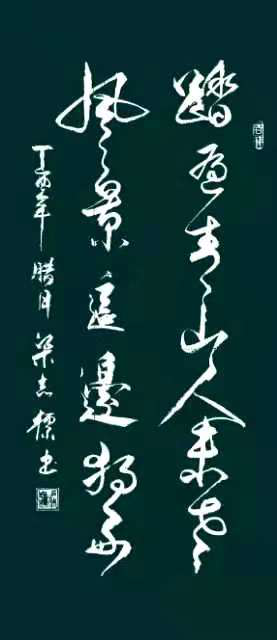 踏遍青山人未老
風景這邊独好
丁酉年腊月 梁志標书